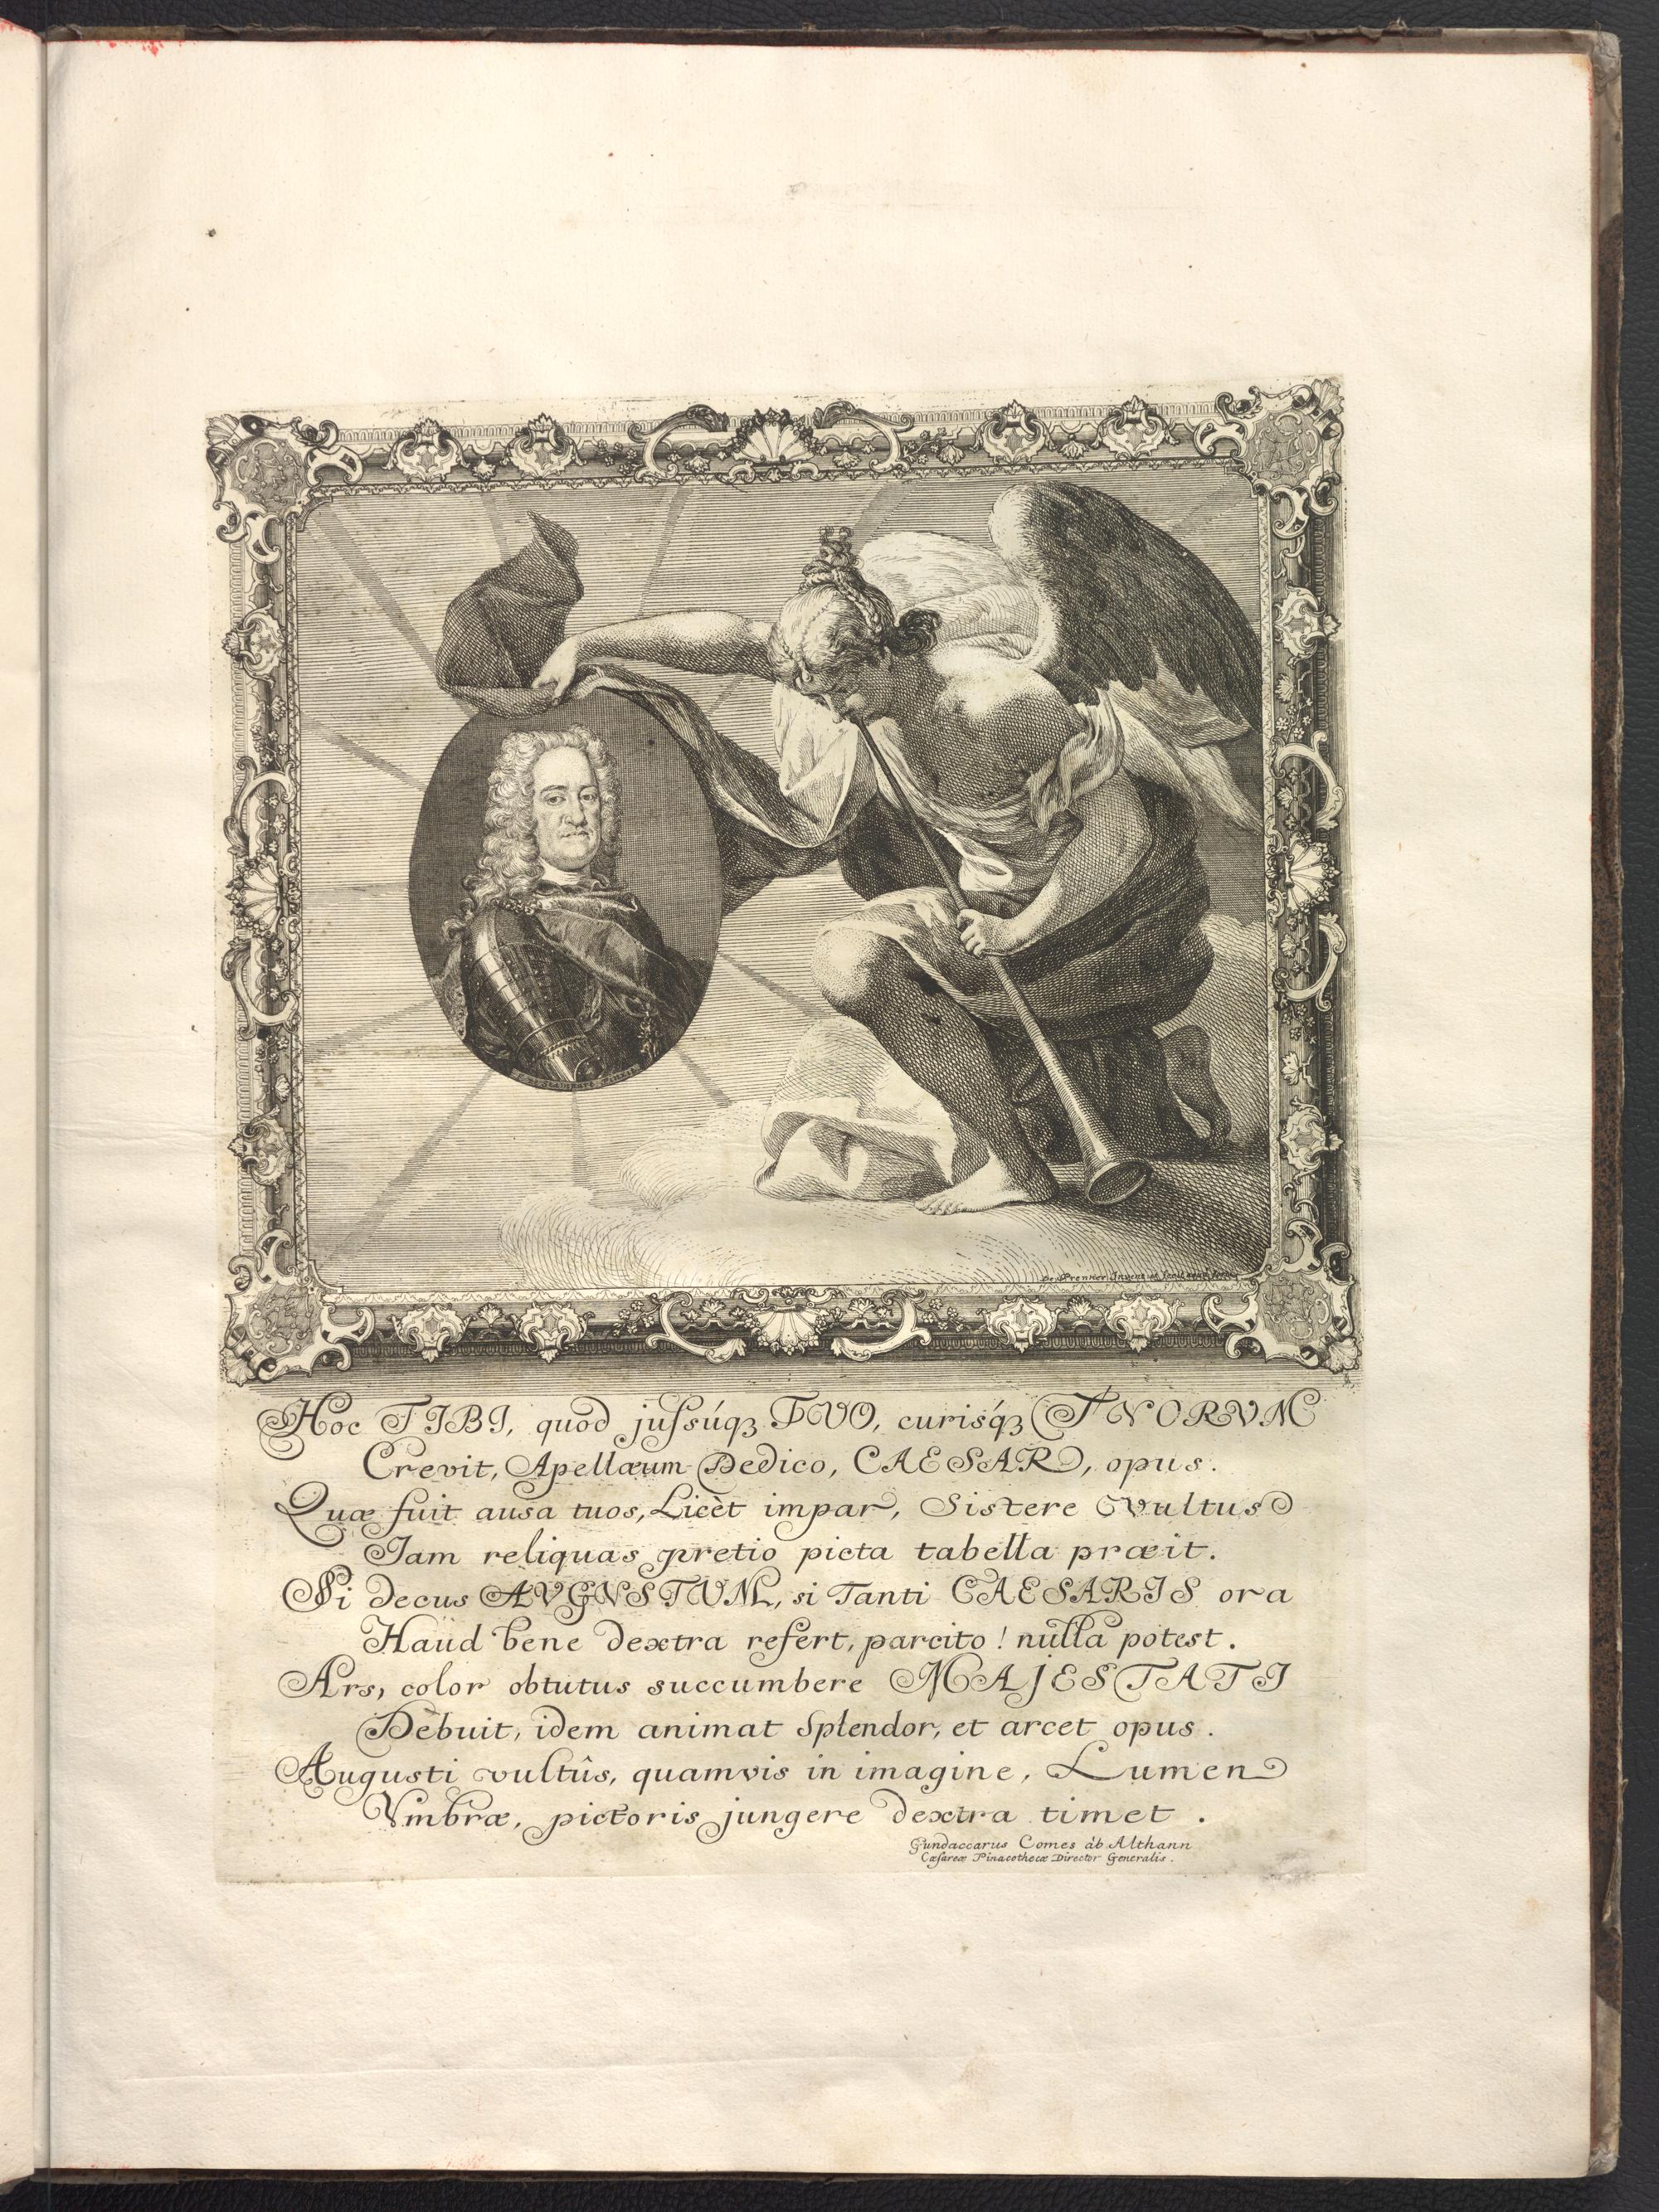 F. de Stampart Pinxit
de Prenner Invenit et
Hoc TIBI, quod juſsúqꝫ TVO, curisq́ꝫ TVORVM
Crevit, Apellæum Dedico, CAESAR, opus.
Quæ fuit ausa tuos, Licèt impar, Sistere Vultus
Jam reliquas pretio picta tabella præit.
Si decus AVGVSTVM, si Tanti CAESARIS ora
Haüd bene dextra refert, parcito! nulla potest.
Ars, color obtutus succumbere MAJESTATI
Dèbuit, idem animat Splendor, et arcet opus.
Augusti vultûs, quamvis in imagine, Lumen
Vmbræ, pictoris jungere dextra timet.
Gundaccarus Comes ab Althann
Cæſareæ Pinacothecæ Director Generalis.